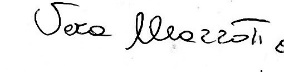 Vera Mazzotti